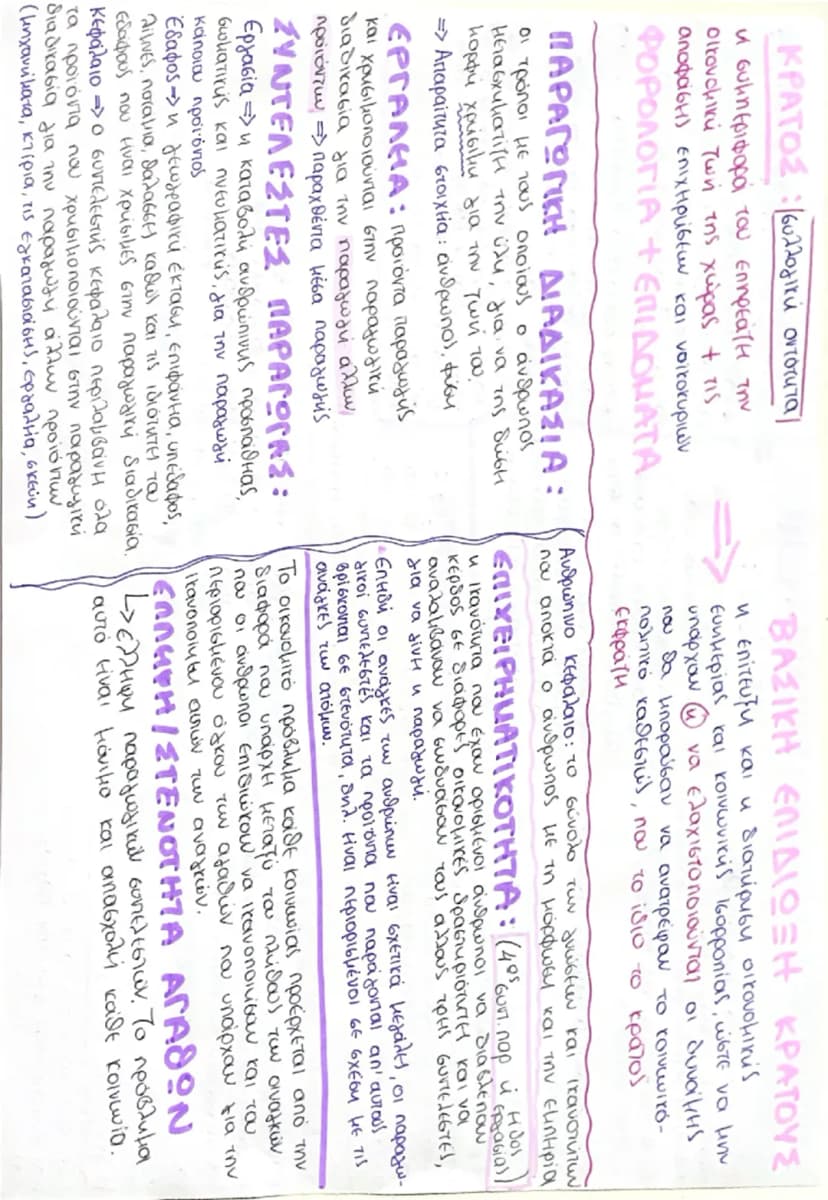 ΚΡΑΤΟΣ: συλλογική οντότητα
η συμπεριφορά του επηρεάζει την
οικονομική ζωή της χώρας + τις
αποφάσεις επιχειρήσεων και νοικοκυριών
ΦΟΡΟΛΟΓΙΑ + ΕΠΙΔΟΜΑΤΑ
⇒
ΒΑΣΙΚΗ ΕΠΙΔΙΩΞΗ ΚΡΑΤΟΥΣ
η επίτευξη και η διατήρηση οικονομικής
ευημερίας και κοινωνικής ισορροπίας, ώστε να μην
υπάρχουν ή να ελαχιστοποιούνται οι δυνάμεις
που θα μπορούσαν να ανατρέψουν το κοινωνικό-
πολιτικό καθεστώς, που το ίδιο το κράτος
εκφράζει
ΠΑΡΑΓΩΓΙΚΗ ΔΙΑΔΙΚΑΣΙΑ:
οι τρόποι με τους οποίους ο άνθρωπος
μετασχηματίζει την ύλη, για να της δώσει
μορφή χρήσιμη για την ζωή του.
⇒ Απαραίτητα στοιχεία: άνθρωπος, φύση
ΕΡΓΑΛΕΙΑ: προϊόντα παραγωγής
και χρησιμοποιούνται στην παραγωγική
διαδικασία για την παραγωγή άλλων
προϊόντων ⇒ παραχθέντα μέσα παραγωγής
ΣΥΝΤΕΛΕΣΤΕΣ ΠΑΡΑΓΩΓΑΣ:
Εργασία ⇒ η καταβολή ανθρώπινης προσπάθειας,
σωματικής και πνευματικής, για την παραγωγή
κάποιου προϊόντος
Έδαφος ⇒ η γεωγραφική έκταση, επιφάνεια, υπέδαφος,
λίμνες, ποτάμια, θάλασσες καθώς και τις ιδιότητες του
εδάφους που είναι χρήσιμες στην παραγωγική διαδικασία.
Κεφάλαιο ⇒ ο συντελεστής κεφάλαιο περιλαμβάνει όλα
τα προϊόντα που χρησιμοποιούνται στην παραγωγική
διαδικασία για την παραγωγή άλλων προϊόντων
(μηχανήματα, κτίρια, τις εγκαταστάσεις, εργαλεία, σκεύη)
Ανθρώπινο κεφάλαιο: το σύνολο των γνώσεων και ικανοτήτων
που αποκτά ο άνθρωπος με τη μόρφωση και την εμπειρία
ΕΠΙΧΕΙΡΗΜΑΤΙΚΟΤΗΤΑ: (4ος συντ. παρ ή είδος εργασίας)
η ικανότητα που έχουν ορισμένοι άνθρωποι να διαβλέπουν
κέρδος σε διάφορες οικονομικές δραστηριότητες και να
αναλαμβάνουν να συνδυάσουν τους άλλους τρεις συντελεστές,
για να γίνει η παραγωγή.
• Επειδή οι ανάγκες των ανθρώπων είναι σχετικά μεγάλες, οι παραγω-
γικοί συντελεστές και τα προϊόντα που παράγονται απ' αυτούς
βρίσκονται σε στενότητα, δηλ. είναι περιορισμένοι σε σχέση με τις
ανάγκες των ατόμων.
Το οικονομικό πρόβλημα κάθε κοινωνίας προέρχεται από την
διαφορά που υπάρχει μεταξύ του πλήθους των αναγκών
που οι άνθρωποι επιδιώκουν να ικανοποιήσουν και του
περιορισμένου όγκου των αγαθών που υπάρχουν για την
ικανοποίηση αυτών των αναγκών.
ΕΛΛΕΙΨΗ/ΣΤΕΝΟΤΗΤΑ ΑΓΑΘΩΝ
↳ έλλειψη παραγωγικών συντελεστών. Το πρόβλημα
αυτό είναι μόνιμο και απασχολεί κάθε κοινωνία.